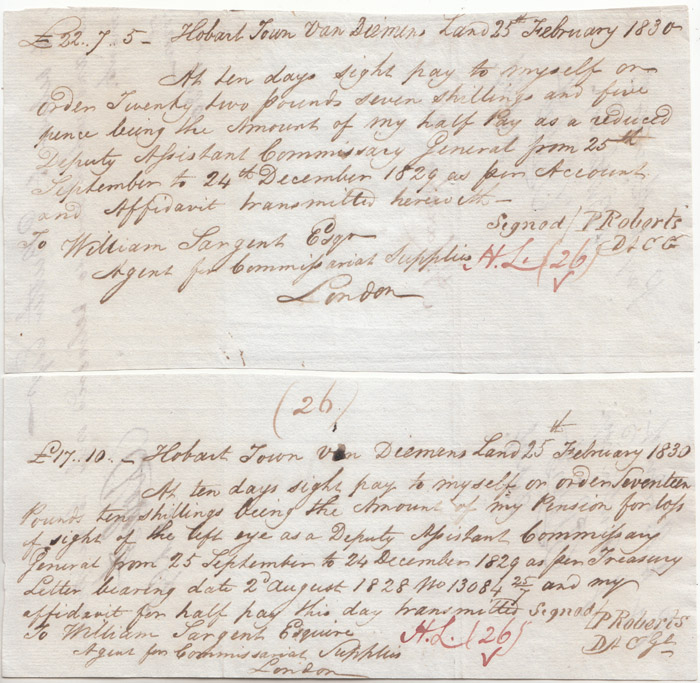 £22..7..5- Hobart Town Van Diemens Land 25th February 1830
At ten days sight pay to myself or
order Twenty two pounds seven shillings and five
pence being the Amount of my half Pay as a reduced
Deputy Assistant Commissary General from 25th
September to 24th December 1829 as per Account
and Affidavit transmitted herewith-
Signed / P Roberts
To William Sargent Esqr D A C G
Agent for Commissariat Supplies H.L. (26)
London
(26)
£17..10..- Hobart Town Van Diemens Land 25th February 1830
At ten days sight pay to myself or order Seventeen
Pounds ten shillings being the Amount of my Pension for loss
of sight of the left eye as a Deputy Assistant Commissary
General from 25 September to 24 December 1829 as per Treasury
Letter bearing date 2d August 1828 No 13084 25/7 and my
affidavit for half pay this day transmitted Signed / P Roberts
To William Sargent Esquire H.L. (26) D A C Gl
Agent for Commissariat Supplies
London